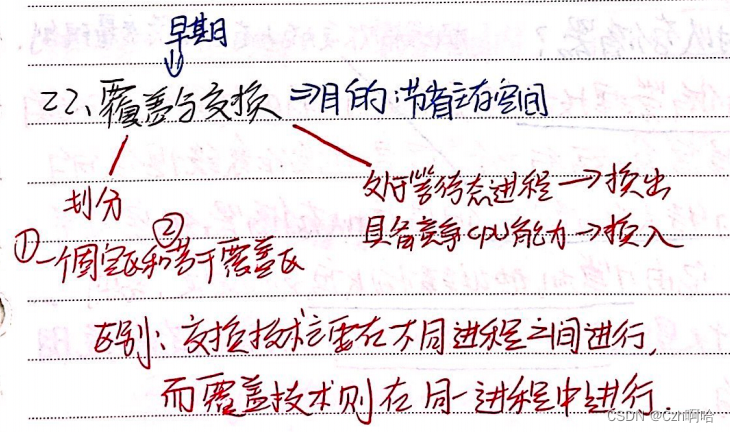 早期
22、覆盖与交换 ⇒目的:节省主存空间
划分
处于等待态进程→换出
具备竞争CPU能力→换入
①一个固定区和②若干覆盖区
区别:交换技术主要在不同进程之间进行,
而覆盖技术则在同一进程中进行.
CSDN @Czh啊哈